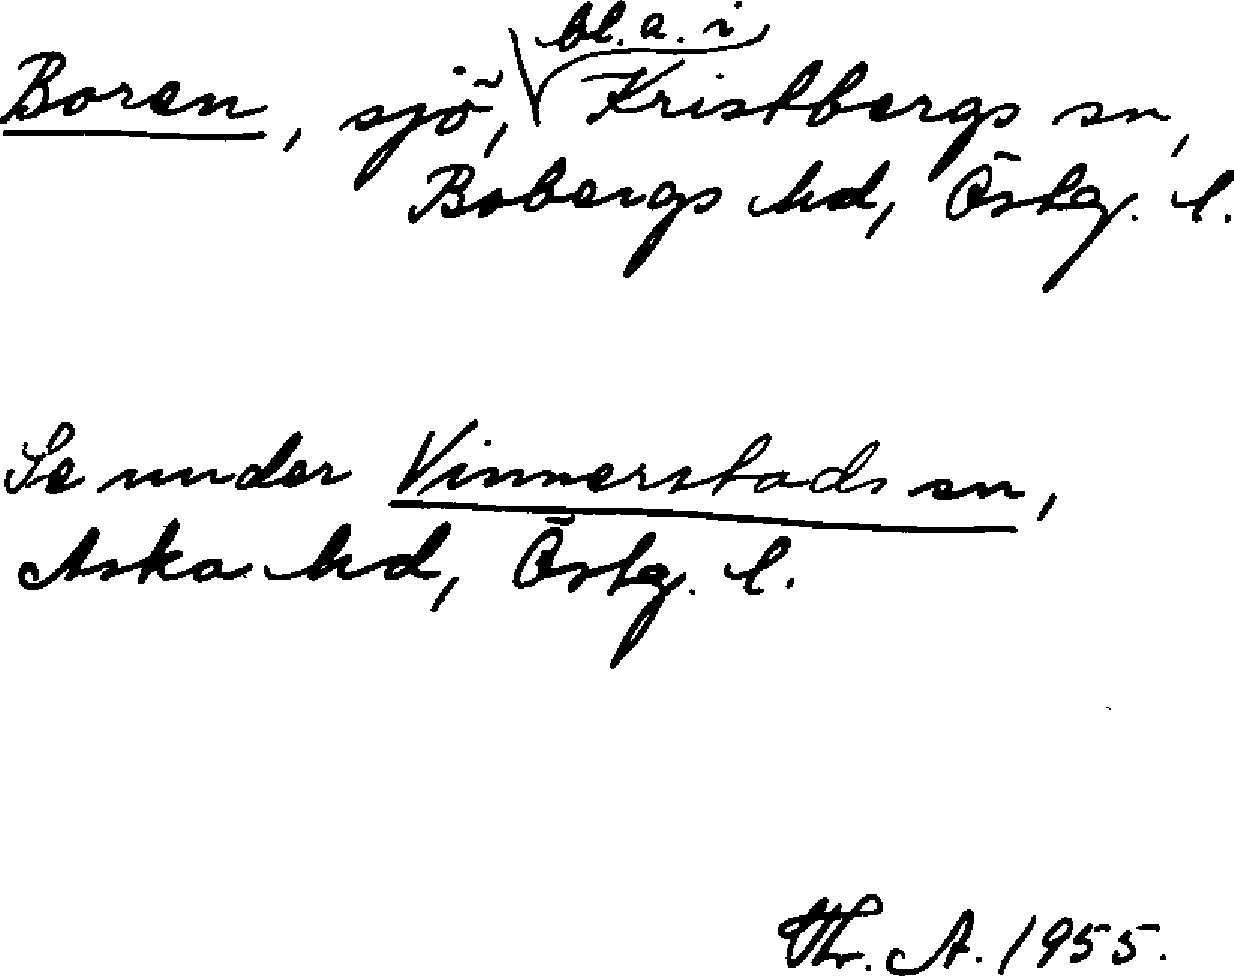 Boren, sjö, bl. a. i Kristbergs sn,
Bobergs hd, Östg. l.
Se under Vinnerstads sn,
Aska hd, Östg. l.
Thr. A. 1955.